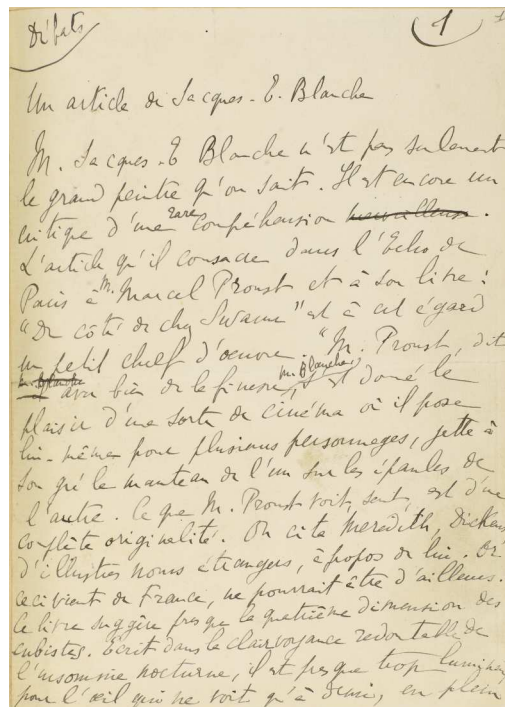 Débats
1
Un article de Jacques-E. Blanche
M. Jacques-E Blanche n'est pas seulement
le grand peintre qu'on sait. Il est encore un
critique d'une rare compéhension merveilleuse.
L'article qu'il consacre dans l'Echo de
Paris à M. Marcel Proust et à son livre :
"Du côté de chez Swann" est à cet égard
un petit chef d'oeuvre. "M. Proust, dit
M. Blanche avec bien de la finesse, M. Blanche, s'est donné le
plaisir d'une sorte de cinéma où il pose
lui-même pour plusieurs personnages, jette à
son gré le manteau de l'un sur les épaules de
l'autre. Ce que M. Proust voit, sent, est d'une
complète originalité. On cita Meredith, Dickens
d'illustres noms étrangers, à propos de lui. Or
ceci vient de France, ne pourrait être d'ailleurs.
Ce livre suggère presque la quatrième dimension des
cubistes. Ecrit dans la clairvoyance redoutable de
l'insomnie nocturne, il est presque trop lumineux
pour l'œil qui ne voit qu'à demi, en plein